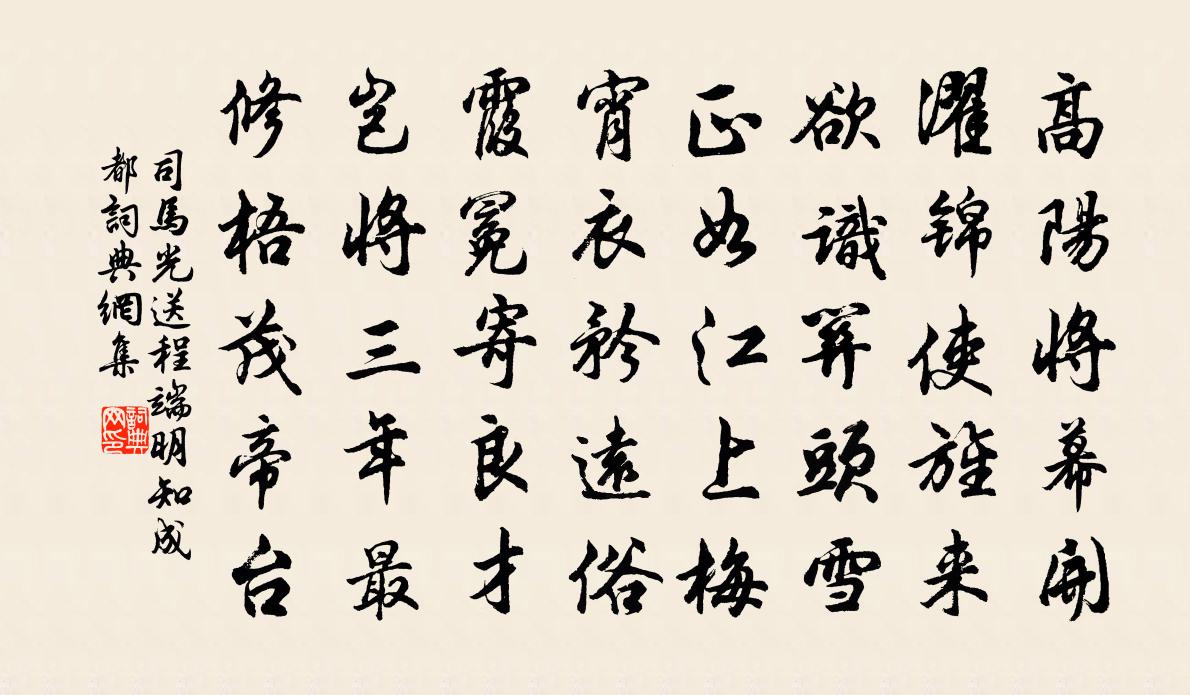 高陽將幕開
濯錦使旌来
欲識關頭雪
正如江上梅
宵衣矜遠俗
霞冕寄良才
豈將三年最
修梧茂帝台
司馬光送程端明知成
都詞典網集
詞典
网印